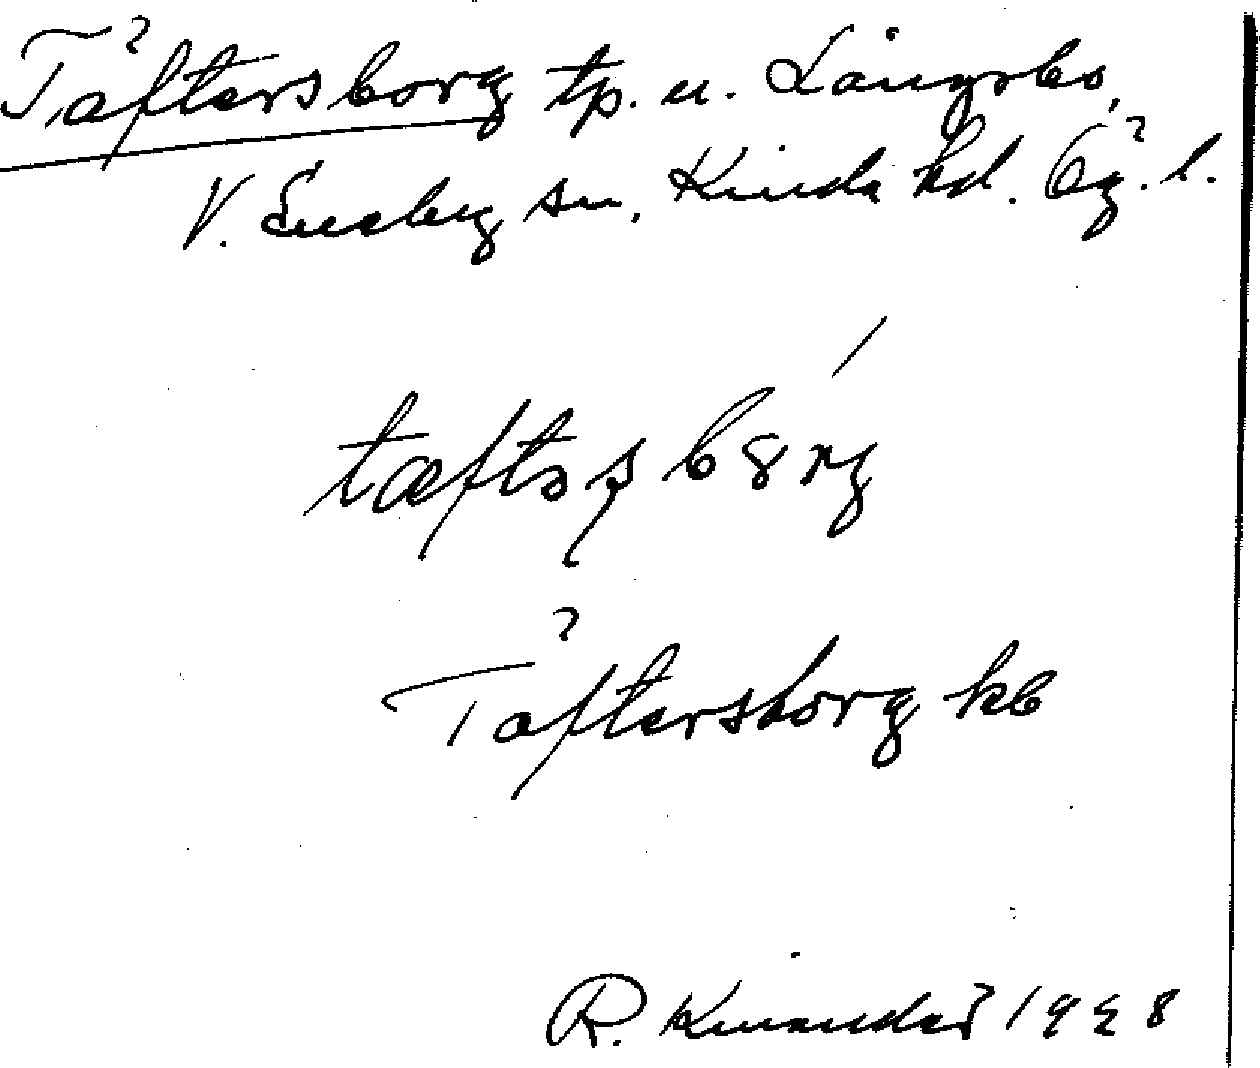 Täftersborg tp. u. Långsbo,
V. Eneby sn. Kinda hd. Ög. l.
tæftəʂbȣrg
Täftersborg kb
R. Kinander 1948